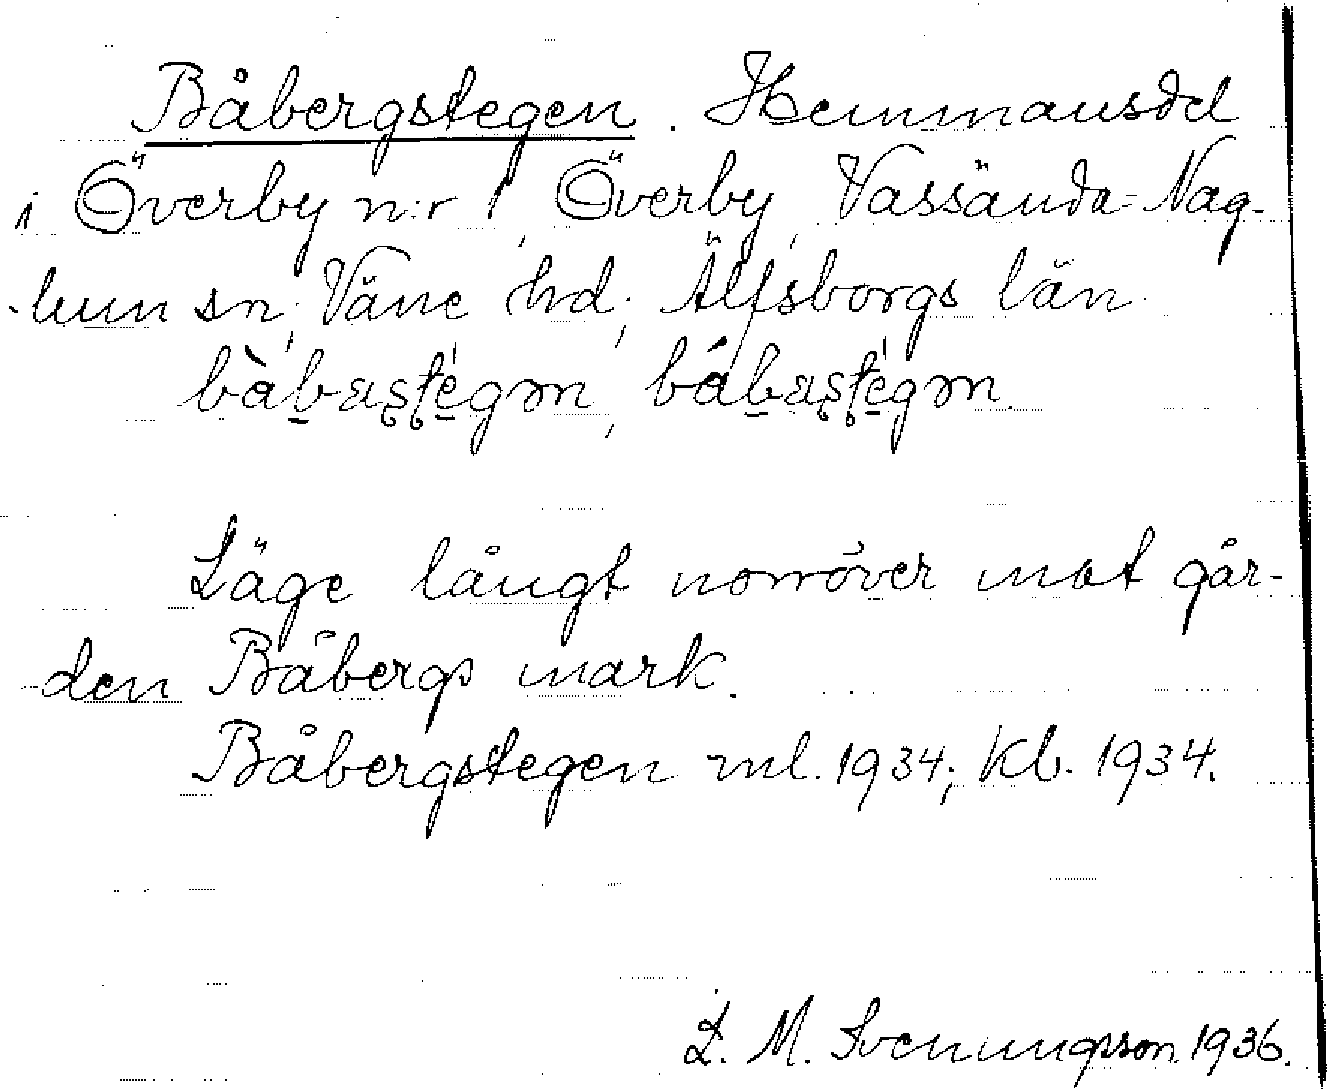 Båbergstegen. Hemmansdel
i Överby n:r 1, Överby, Vassända-Nag-
lum sn, Väne hd, Älfsborgs län.
bàbaştégən, bábaştégən.
Läge långt norröver mot går-
den Båbergs mark.
Båbergstegen ml. 1934; Kb. 1934.
L. M. Svenungsson 1936.